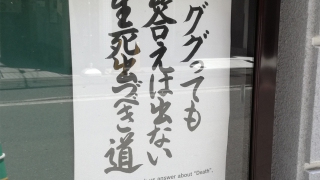 ググっても
答えは出ない
生死出づべき道
answer about "Death".